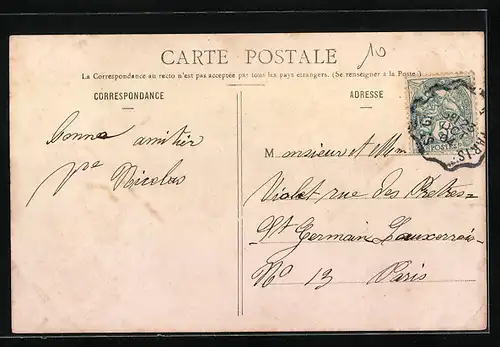 CARTE POSTALE
10
La Correspondance au recto n'est pas acceptée par tous les pays étrangers. (Se renseigner à la Poste.)
CORRESPONDANCE
ADRESSE
Bonne amitier
Nicolas
Monsieur et Mme
Violet rue des Pretres=
St Germain Lauxerrois
No 13 Paris
PARIS